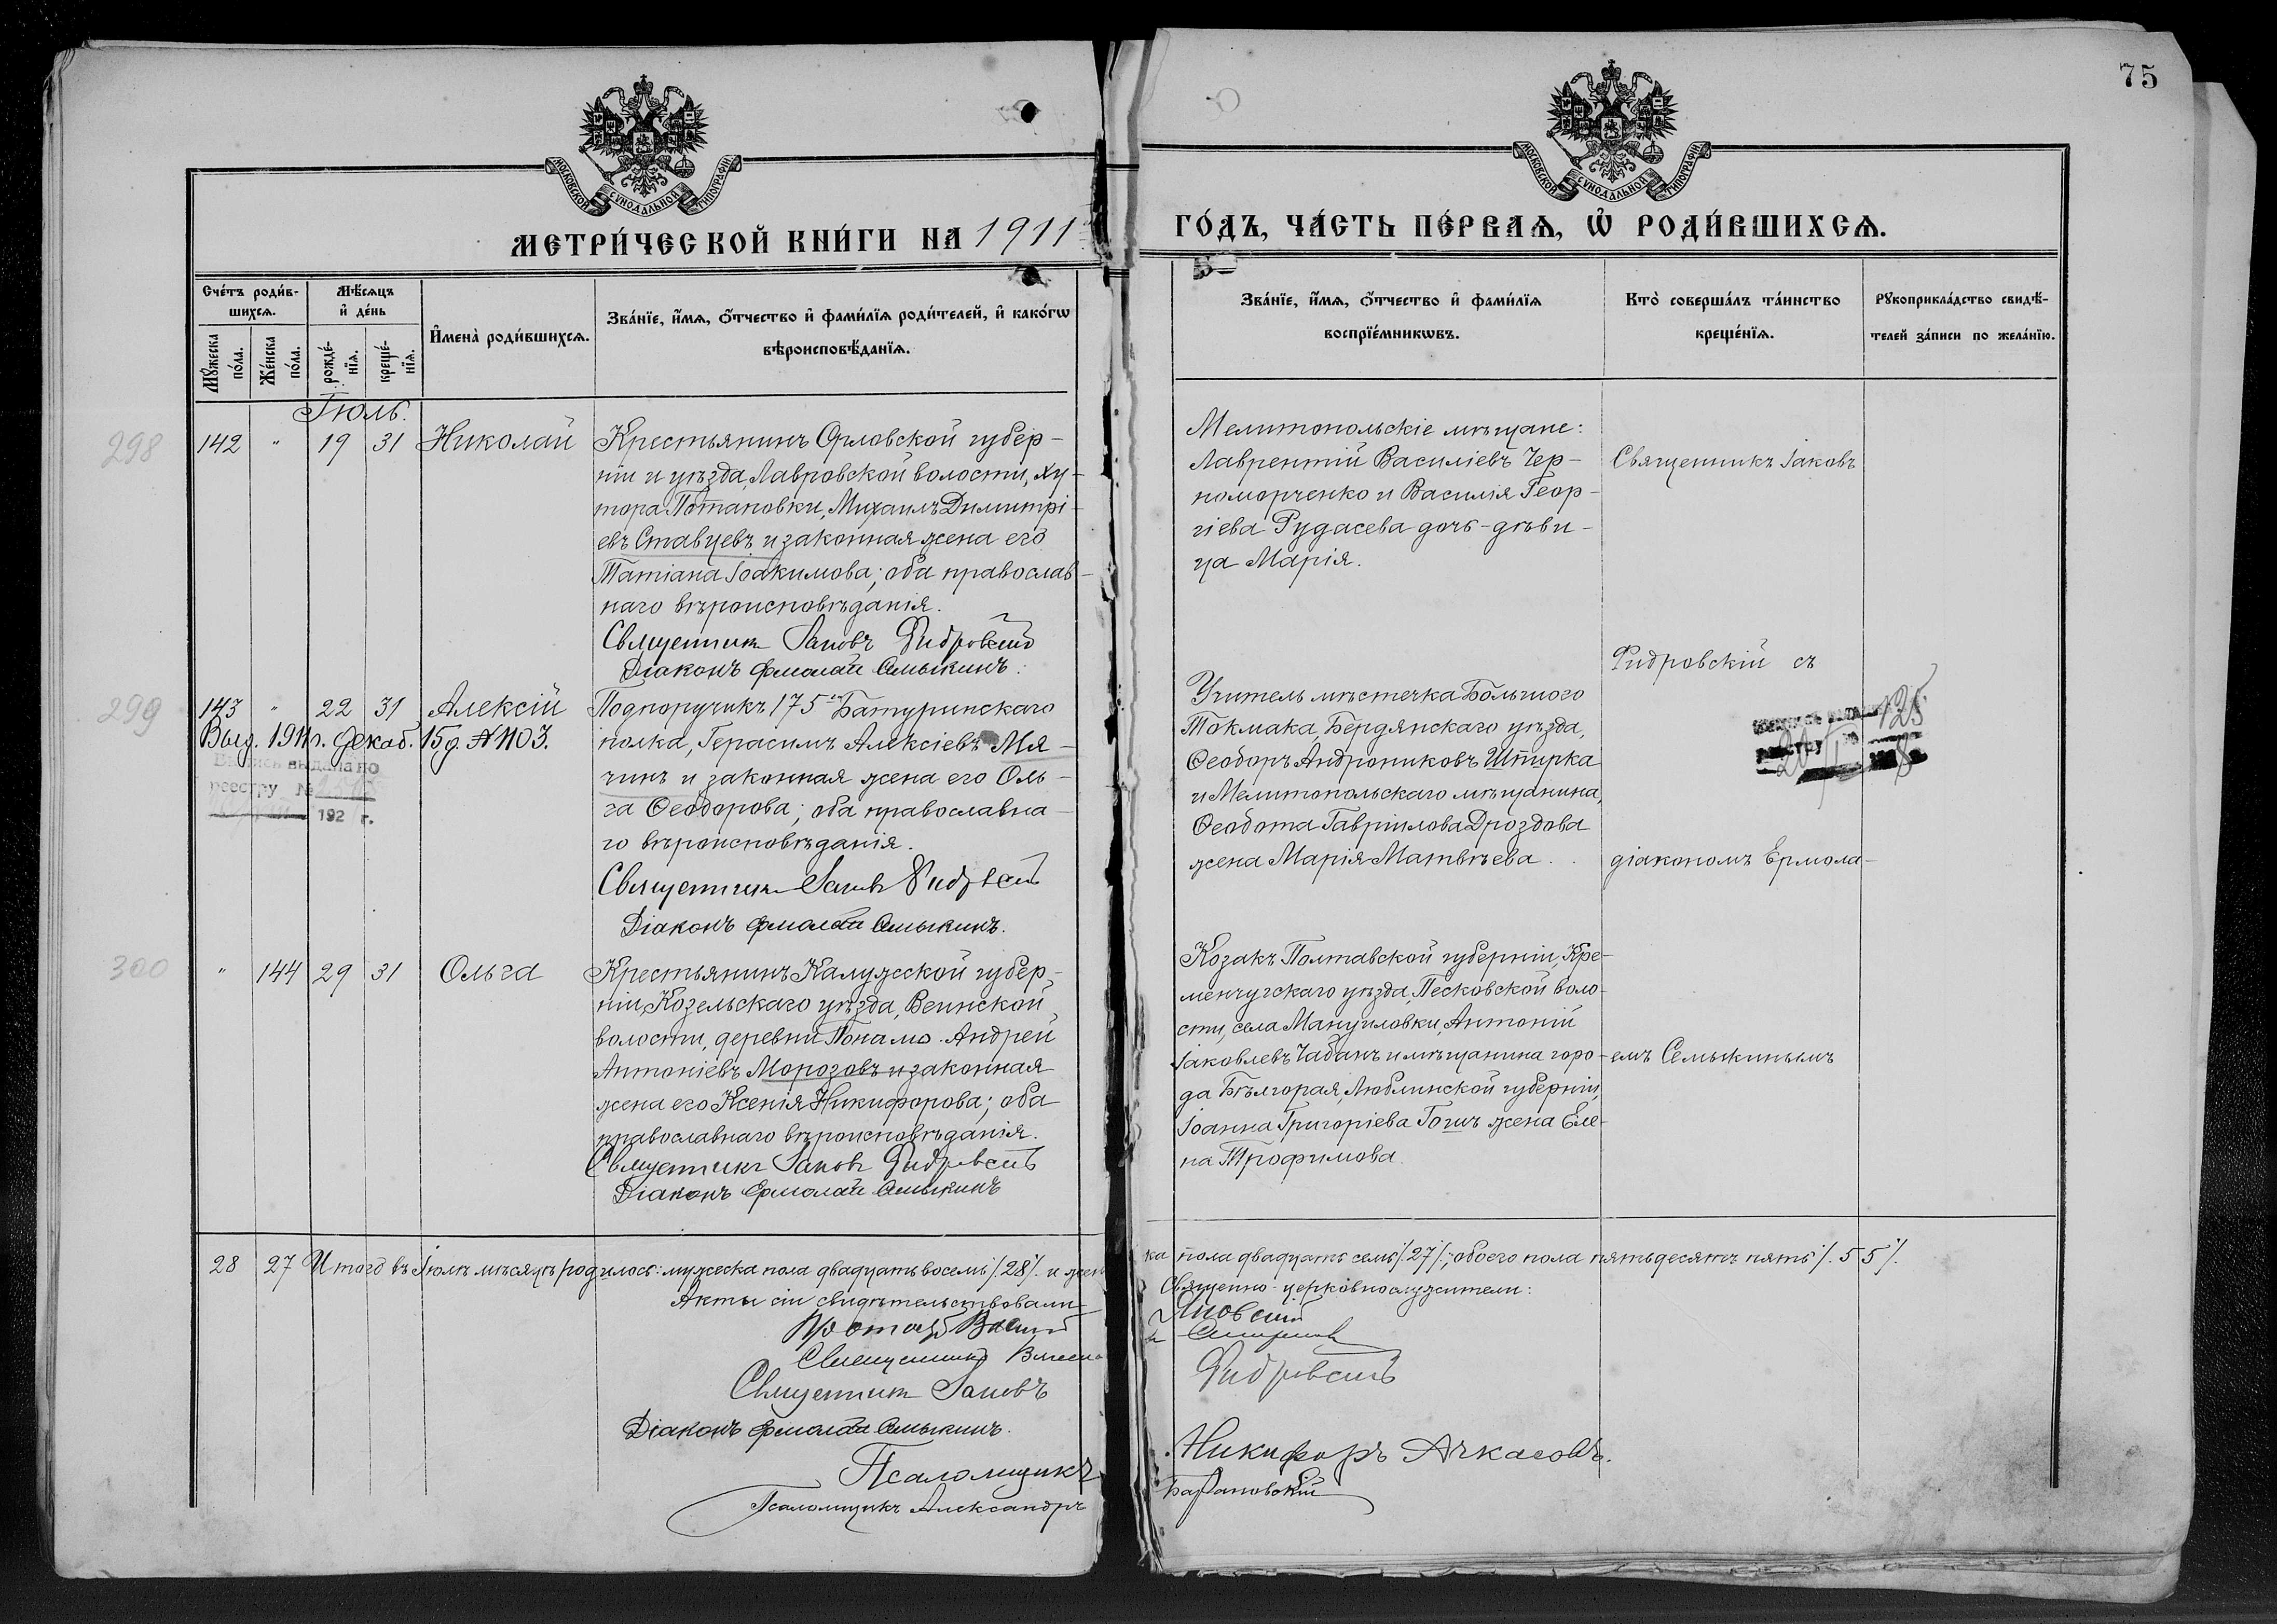 75
МОСКОВСКОЙ СУНОДАЛЬНОЙ ТИПОГРАФІИ
МОСКОВСКОЙ СУНОДАЛЬНОЙ ТИПОГРАФІИ
МЕТРИ́ЧЕСКОЙ КНИ́ГИ НА 1911
ГО́ДЪ, ЧА́СТЬ ПЕ́РВАѦ, Ѡ҆ РОДИ́ВШИХСѦ.
Сче́тъ роди́в-
шихсѧ.
Мѣ́сѧцъ
и҆ де́нь
Мꙋ́жеска
по́ла.
Же́нска
по́ла.
рожде́-
нїѧ.
креще́-
нїѧ.
И҆мена̀ роди́вшихсѧ.
Зва́нїе, и҆́мѧ, ѻ҆́тчество и҆ фами́лїѧ роди́телей, и҆ како́гѡ
вѣроисповѣ́данїѧ.
Зва́нїе, и҆́мѧ, ѻ҆́тчество и҆ фами́лїѧ
воспрїе́мникѡвъ.
Кто̀ соверша́лъ та́инство
креще́нїѧ.
Рꙋкоприкла́дство свидѣ́-
телей за́писи по жела́нїю.
Іюль.
298
142 " 19 31 Николай
Крестьянинъ Орловской губер-
ніи и уѣзда, Лавровской волости, ху-
тора Потаповки, Михаилъ Димитрі-
евъ Ставцевъ и законная жена его
Татіана Іоакимова; оба православ-
наго вѣроисповѣданія.
Священникъ Іаковъ Ридровскій
Діаконъ Ермолай Семыкинъ.
Мелитопольскіе мѣщане:
Лаврентій Василіевъ Чер-
номорченко и Василія Геор-
гіева Рудасева дочь-дѣви-
ца Марія.
Священникъ Іаковъ
Ридровскій съ
299
143 " 22 31 Алексій
Выд. 1911 г. Декаб. 15 д. № 1103.
Выпись выдана по
реестру №
192 г.
Подпоручикъ 175го Батуринскаго
полка, Герасимъ Алексіевъ Мя-
чинъ и законная жена его Оль-
га Ѳеодорова; оба православна-
го вѣроисповѣданія.
Священникъ Іаковъ Ридровскій
Діаконъ Ермолай Семыкинъ.
Учитель мѣстечка Большого
Токмака, Бердянскаго уѣзда,
Ѳеодоръ Андрониковъ Шпирка
и Мелитопольскаго мѣщанина,
Ѳеодота Гавріилова Дроздова
жена Марія Матвѣева.
діакономъ Ермола-
125
300
" 144 29 31 Ольга
Крестьянинъ Калужской губер-
ніи, Козельскаго уѣзда, Веинской
волости, деревни Андрей
Антоніевъ Морозовъ и законная
жена его Ксенія Никифорова; оба
православнаго вѣроисповѣданія.
Священникъ Іаковъ Ридровскій
Діаконъ Ермолай Семыкинъ
Козакъ Полтавской губерніи, Кре-
менчугскаго уѣзда, Песковской воло-
сти, села Мануиловки, Антоній
Іаковлевъ Чабанъ и мѣщанина горо-
да Бѣлгорая, Люблинской губерніи,
Іоанна Григоріева жена Еле-
на Трофимова.
емъ Семыкинымъ
28 27 Итого въ Іюлѣ мѣсяцѣ родилось: мужеска пола двадцать восемь /28/. и женс
ка пола двадцать семь /27/; обоего пола пятьдесятъ пять /55/.
Акты сіи свидѣтельствовали
Священно-церковнослужители:
Священникъ
Священникъ Іаковъ
Ридровскій
Діаконъ Ермолай Семыкинъ.
Псаломщикъ
Никифоръ Ачкасовъ.
Псаломщикъ Александръ
Барановскій